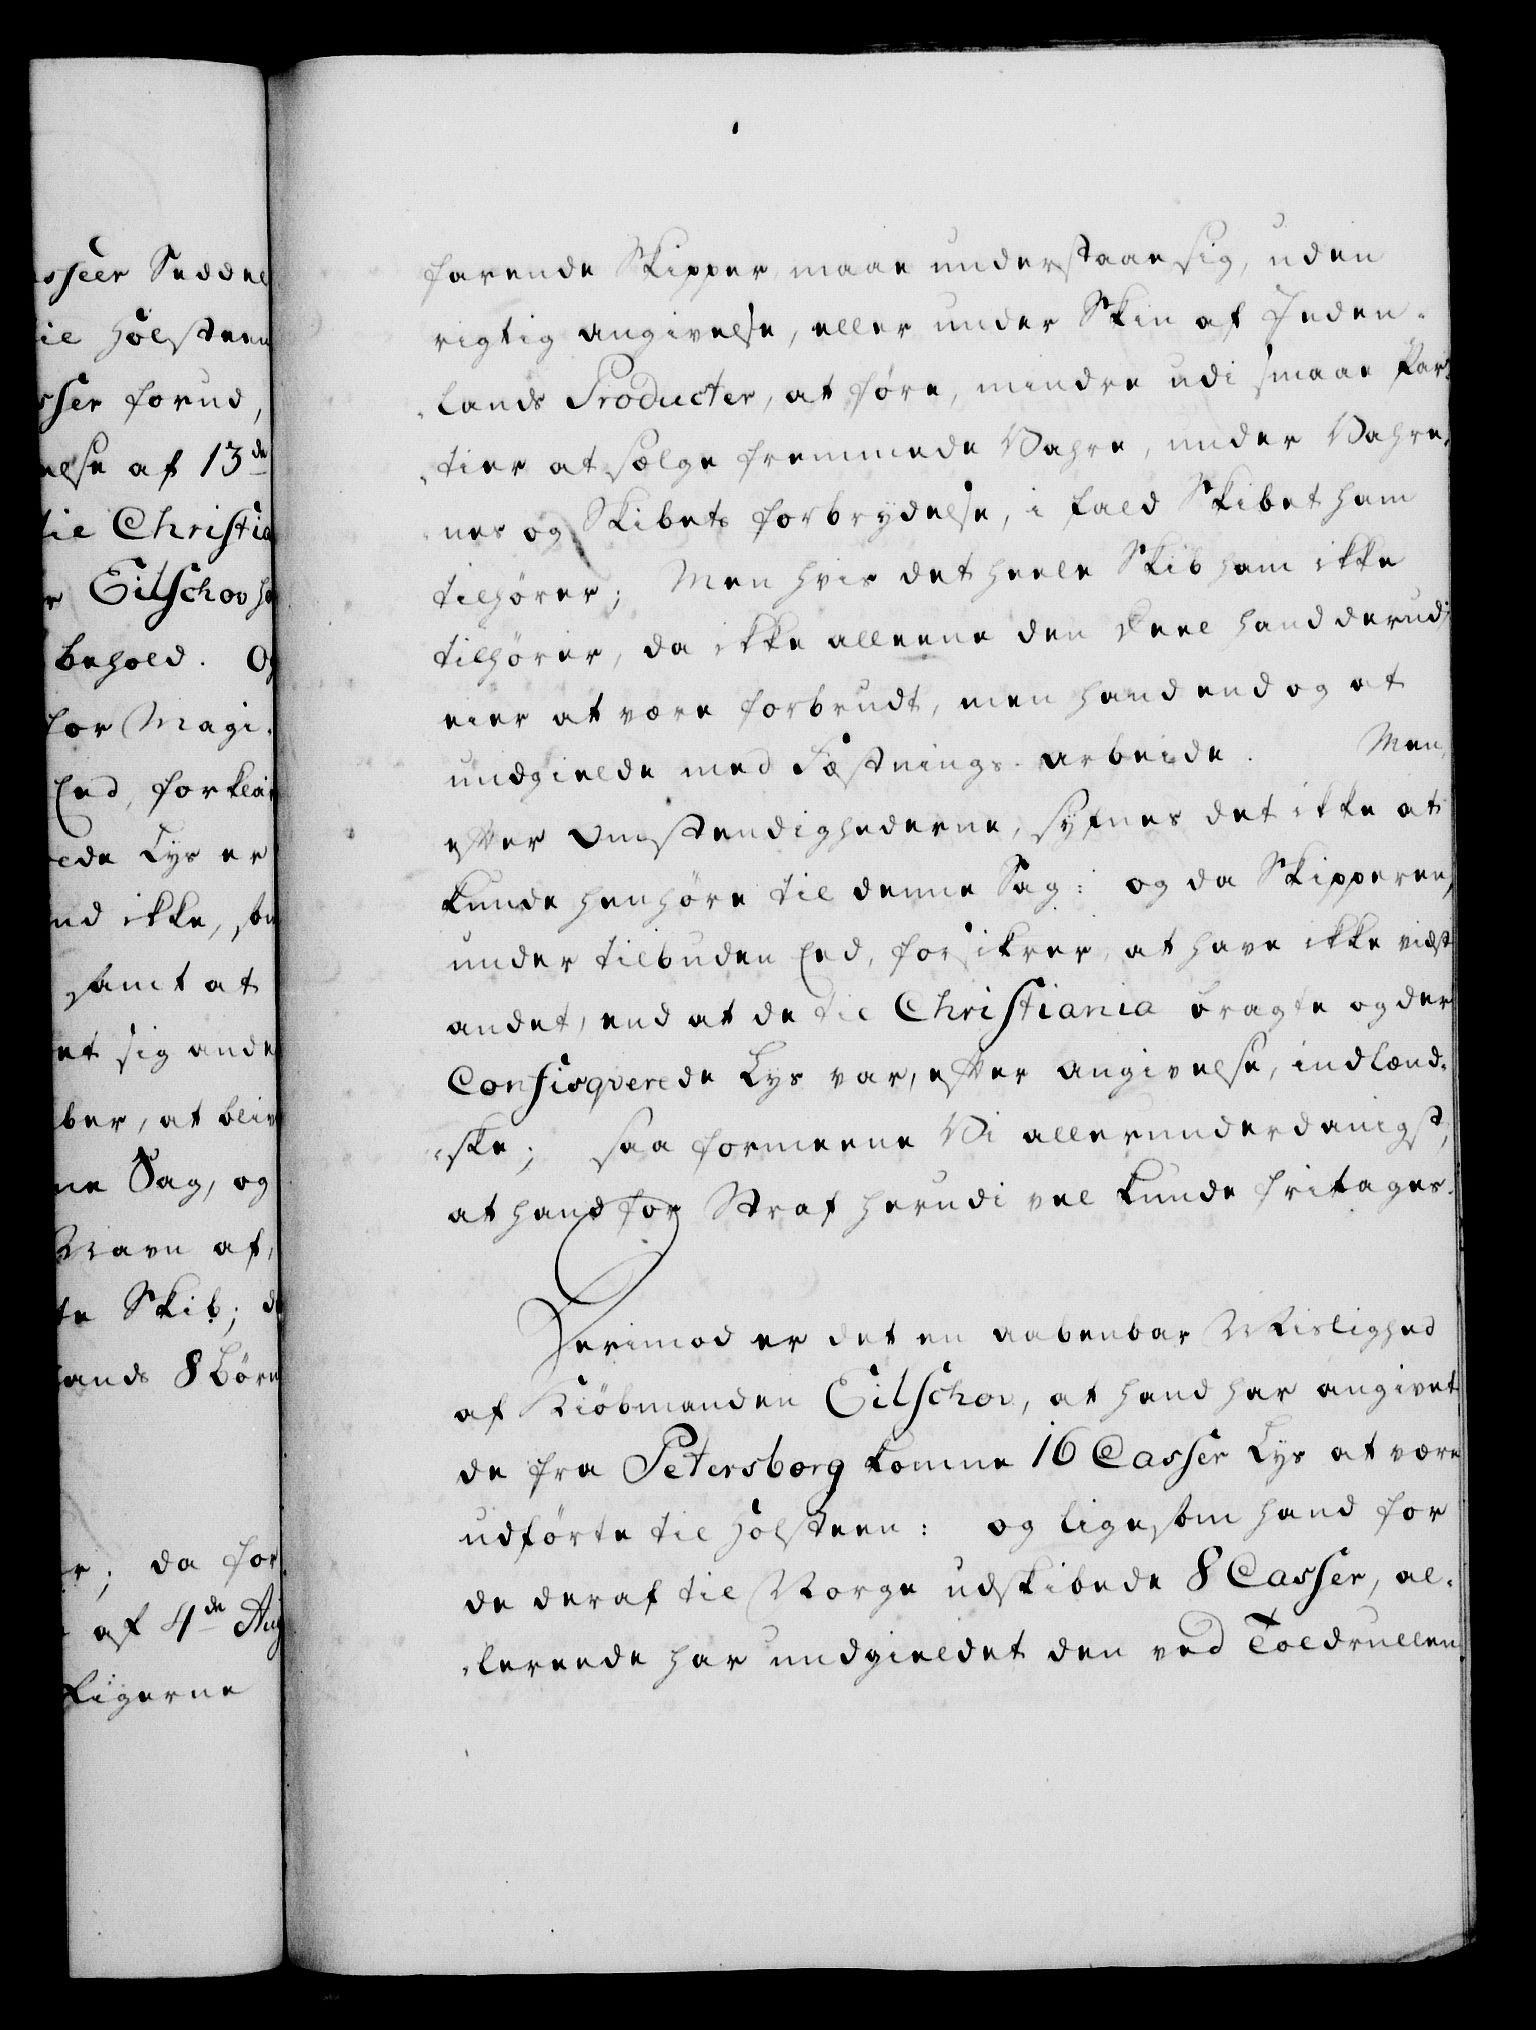 sseer Seddel
til Holsteen
sser forud,
else af 13de
til Christia
r Eilschov ha
behold. Og
for Magi-
Eed, forklar
ede Lys er
nd ikke, som
samt at
et sig ande
ber, at bliv
ne Sag, og
Navn af,
te Skib; d
hands 8 Börn
r; da for
af 4de Aug
ligerne
farende Skipper maae understaae sig, uden
rigtig angivelse, eller under Skin af Inden-
lands Producter, at före, mindre udi smaae Par-
tier at sælge fremmede Vahre, under Vahre-
nes og Skibets forbrydelse, i fald Skibet ham
tilhörer; Men hvis det heele Skib ham ikke
tilhörer, da ikke alleene den Deel hand derudi
eier at være forbrudt, men hand endog at
undgielde med Fæstnings-arbeide. Men,
efter Omstendighederne, syfnes det ikke at
kunde henhöre til denne Sag: og da Skipperen,
under tilbuden Eed, forsikrer, at have ikke vidst
andet, end at de til Christiania bragte og der
Confisqverede Lys var, efter angivelse, indlænd-
ske; saa formeene Vi allerunderdanigst,
at hand for Straf herudi vel kunde fritages.
Derimod er det en aabenbar Mislighed
af Kiöbmanden Eilschov, at hand har angivet
de fra Petersborg komne 16 Casser Lys at være
udförte til Holsteen: og ligesom hand for
de deraf til Norge udskibede 8 Casser, al-
lereede har undgieldet den ved Toldrullen